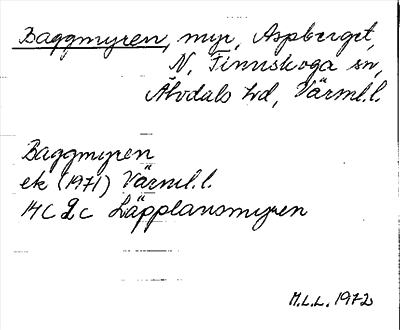 Baggmyren, myr, Aspberget,
N. Finnskoga sn,
Älvdals hd, Värml.l.
Baggmyren
ek (1971) Värml.l.
14C 2c Läpplansmyren
M.L.L. 1972